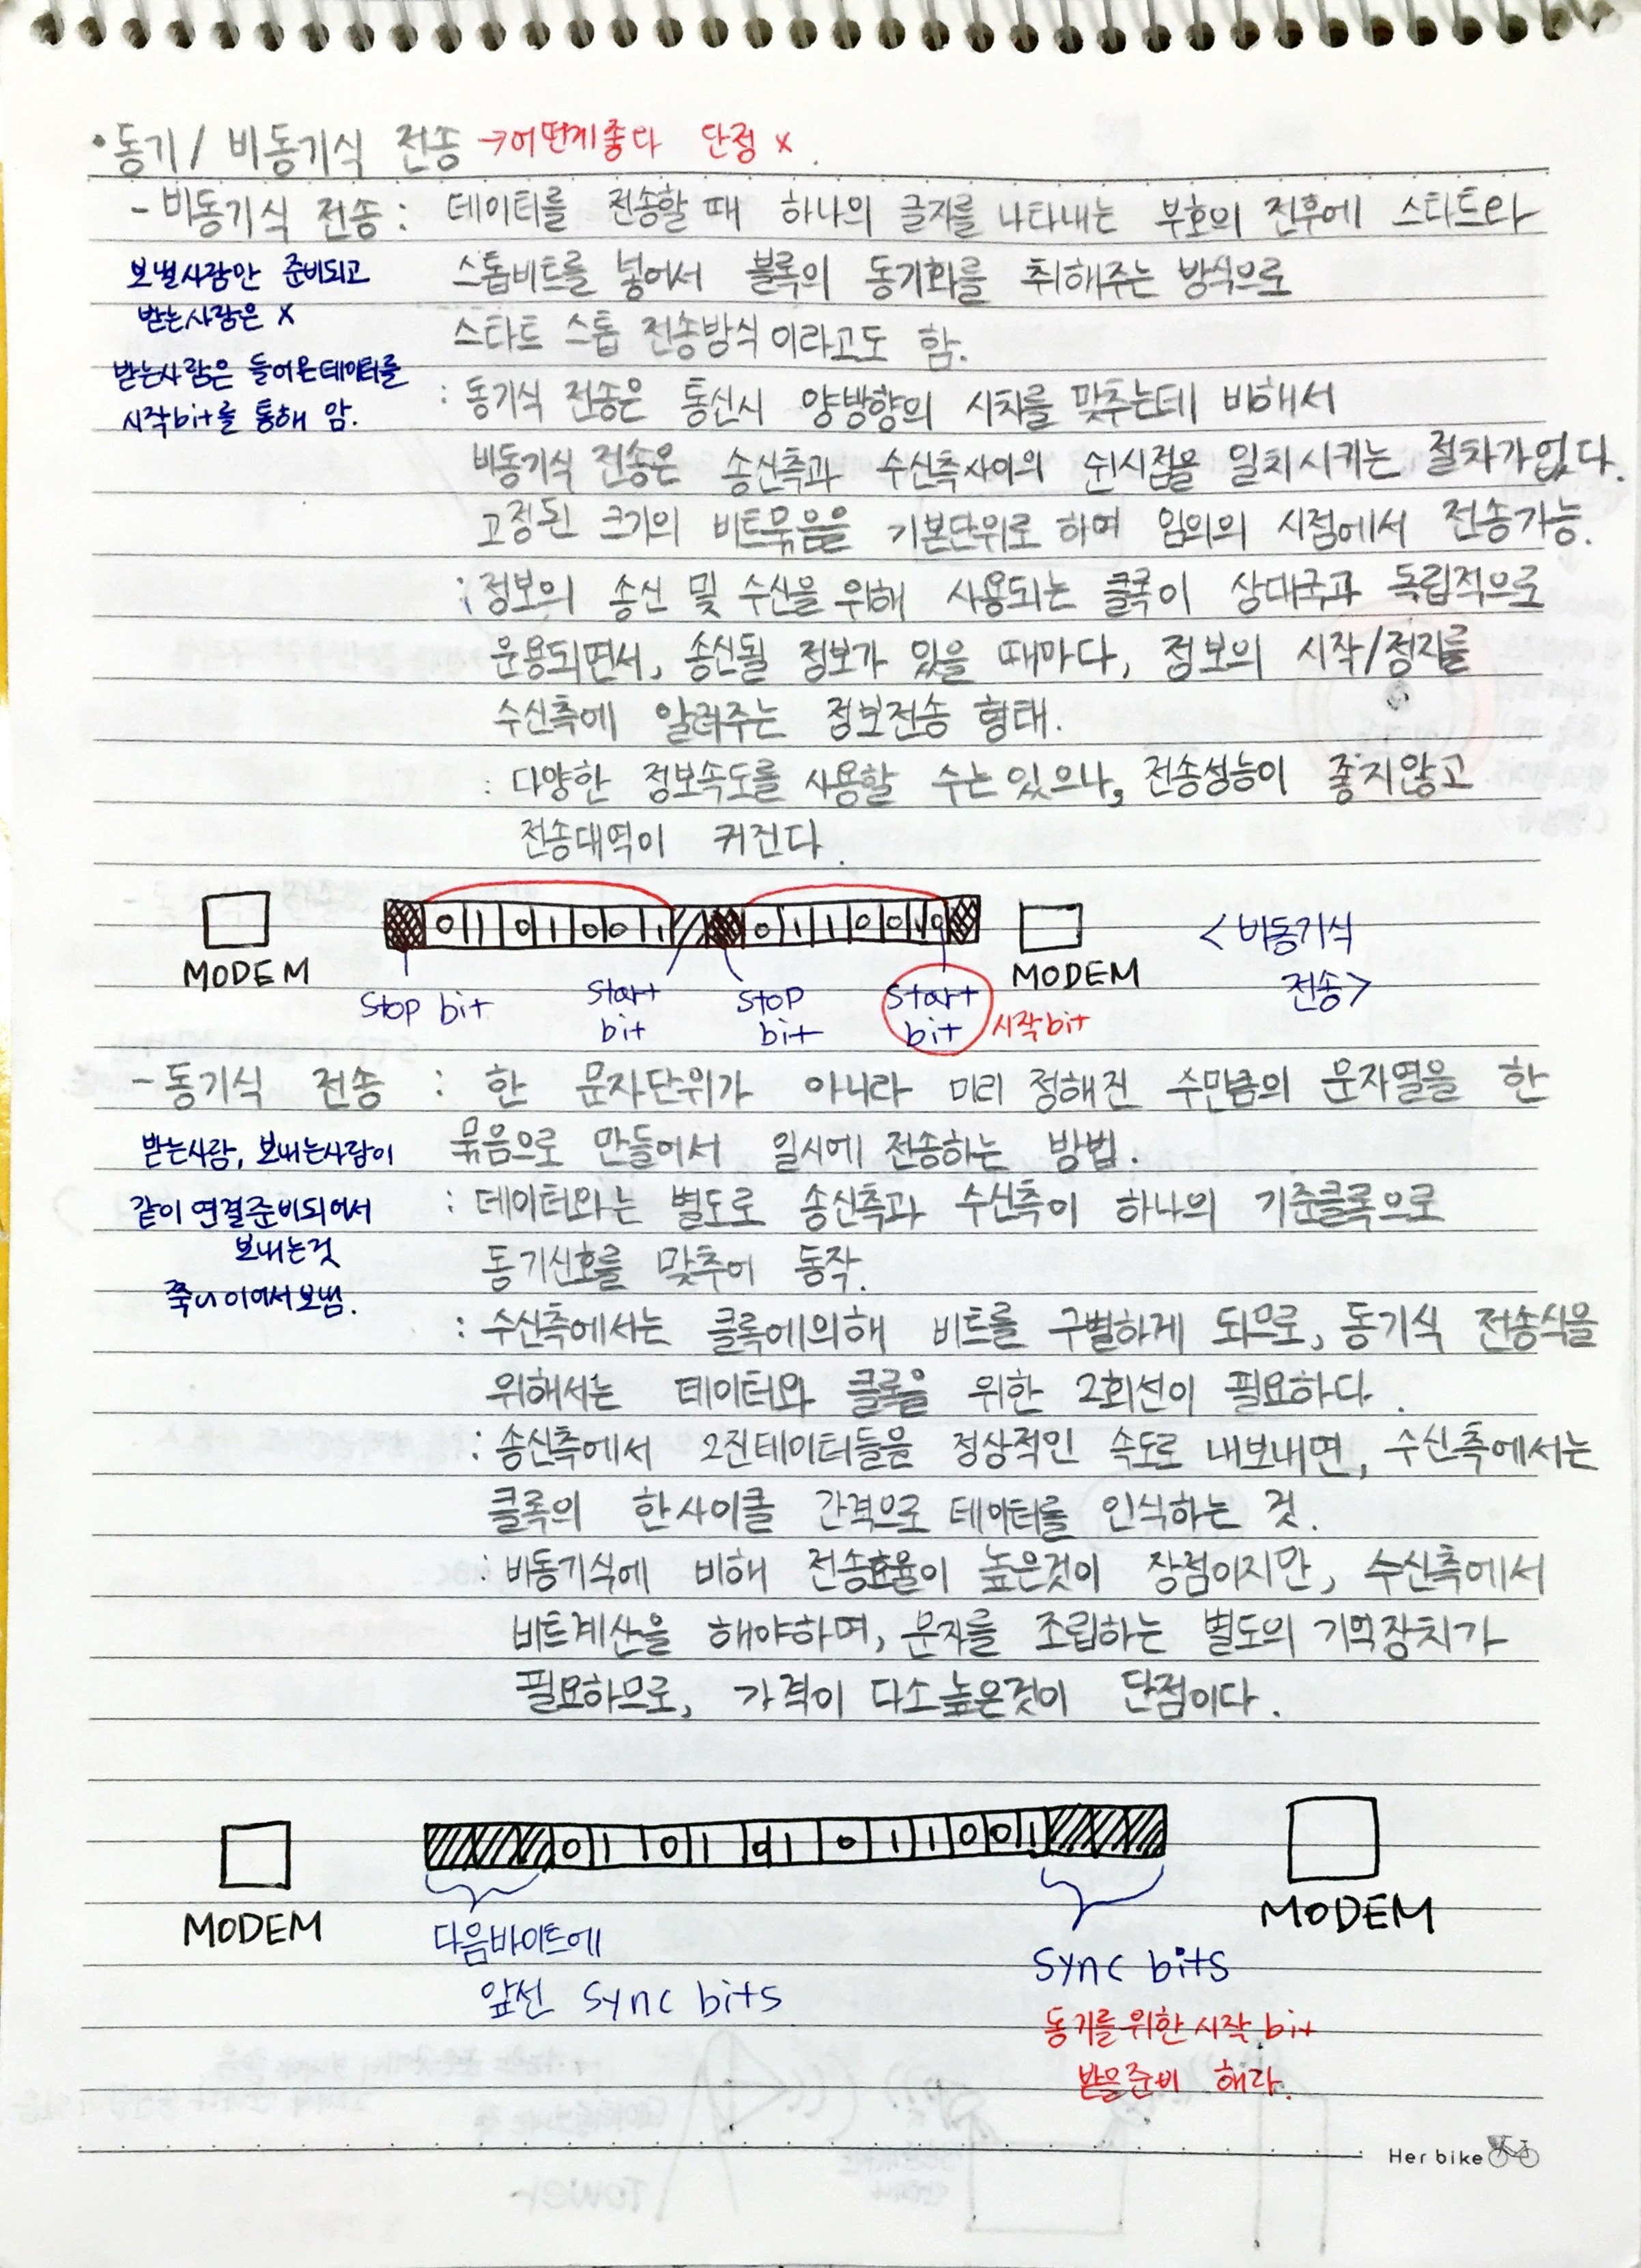 •동기/ 비동기식 전송 →어떤게좋다 단점 x.
- 비동기식 전송 : 데이터를 전송할 때 하나의 글자를 나타내는 부호의 전후에 스타트와
스톱비트를 넣어서 블록의 동기화를 취해주는 방식으로
스타트 스톱 전송방식 이라고도 함.
보낼사람만 준비되고
받는사람은 X
받는사람은 들어온데이터를
시작bit를 통해 암.
: 동기식 전송은 통신시 양방향의 시차를 맞추는데 비해서
비동기식 전송은 송신측과 수신측사이의 시점을 일치시키는 절차가없다.
고정된 크기의 비트묶음을 기본단위로 하여 임의의 시점에서 전송가능.
: 정보의 송신 및 수신을 위해 사용되는 클록이 상대국과 독립적으로
운용되면서, 송신될 정보가 있을 때마다, 정보의 시작/정지를
수신측에 알려주는 정보전송 형태.
: 다양한 정보속도를 사용할 수는있으나, 전송성능이 좋지않고
전송대역이 커진다.
0 1 0 1 0 0 1 0 1 1 0 0 1 0
MODEM
Stop bit
Start
bit
Stop
bit
Start
bit
시작bit
MODEM
< 비동기식
전송>
- 동기식 전송 : 한 문자단위가 아니라 미리 정해진 수만큼의 문자열을 한
묶음으로 만들어서 일시에 전송하는 방법.
받는사람, 보내는사람이
같이 연결준비되어서
보내는것
쭉 이어서보냄.
: 데이터와는 별도로 송신측과 수신측이 하나의 기준클록으로
동기신호를 맞추어 동작.
: 수신측에서는 클록에의해 비트를 구별하게 되므로, 동기식 전송식을
위해서는 데이터와 클록을 위한 2회선이 필요하다.
: 송신측에서 2진데이터들을 정상적인 속도로 내보내면, 수신측에서는
클록의 한사이클 간격으로 데이터를 인식하는 것.
: 비동기식에 비해 전송효율이 높은것이 장점이지만, 수신측에서
비트계산을 해야하며, 문자를 조립하는 별도의 기억장치가
필요하므로, 가격이 다소높은것이 단점이다.
0 1 0 1 0 1 0 1 1 0 0 1
MODEM
다음바이트에
앞선 sync bits
sync bits
동기를 위한 시작 bit
받을준비 해라.
MODEM
Her bike